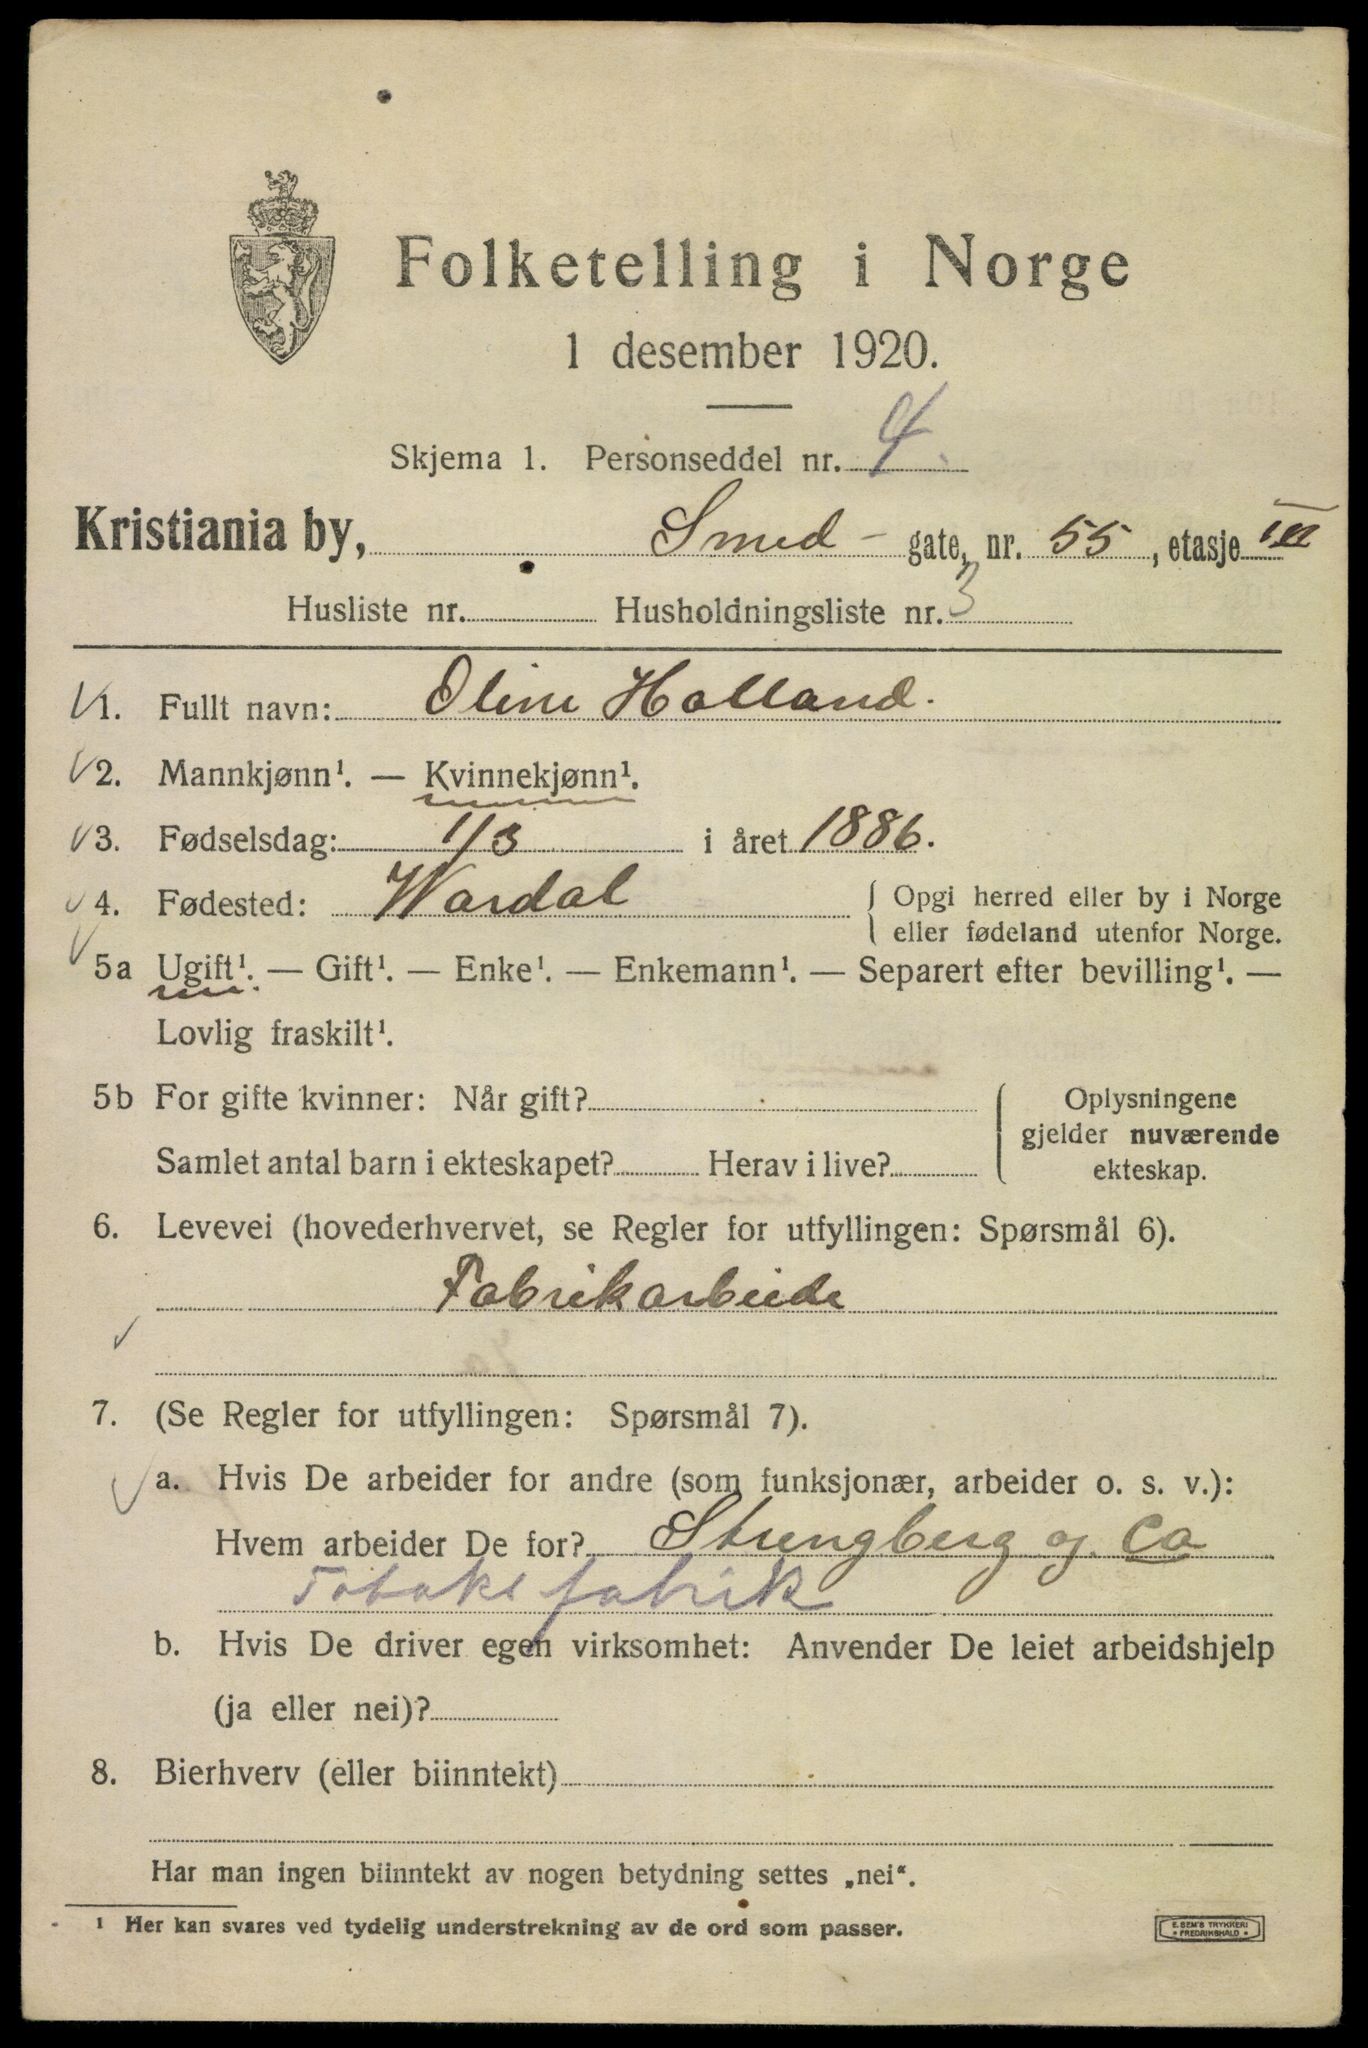 Folketelling i Norge
1 desember 1920.
Skjema 1. Personseddel nr. 4.
Kristiania by, Smed- gate, nr. 55, etasje III
Husliste nr. Husholdningsliste nr. 3
1. Fullt navn: Oline Holland.
2. Mannkjønn¹. — Kvinnekjønn¹.
3. Fødselsdag: 1/3 i året 1886.
4. Fødested: Wardal { Opgi herred eller by i Norge
eller fødeland utenfor Norge.
5a Ugift¹. — Gift¹. — Enke¹. — Enkemann¹. — Separert efter bevilling¹. —
Lovlig fraskilt¹.
5b For gifte kvinner: Når gift? Oplysningene
gjelder nuværende
Samlet antal barn i ekteskapet? Herav i live? ekteskap.
6. Levevei (hovederhvervet, se Regler for utfyllingen: Spørsmål 6).
Fabrikarbeide
7. (Se Regler for utfyllingen: Spørsmål 7).
a. Hvis De arbeider for andre (som funksjonær, arbeider o. s. v.):
Hvem arbeider De for? Strengberg og. Co
Tobaksfabrik
b. Hvis De driver egen virksomhet: Anvender De leiet arbeidshjelp
(ja eller nei)?
8. Bierhverv (eller biinntekt)
Har man ingen biinntekt av nogen betydning settes „nei“.
¹ Her kan svares ved tydelig understrekning av de ord som passer.
E. SEM'S TRYKKERI
* FREDRIKSHALD *